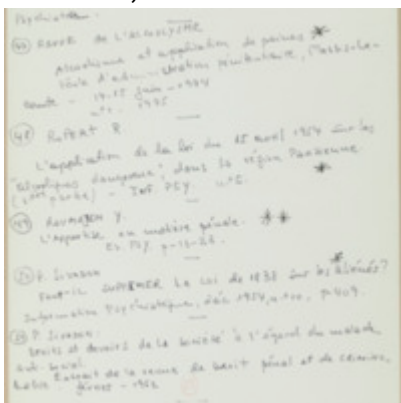 Psychiatrie.
(47) REVUE de L'ALCOOLISME
Alcoolique et application de peines *
école d'administration pénitentiaire,
14-15 juin - 1974
n°1. 1975
(48) R.
L'application de la loi du 15 avril 1954 sur les
"alcooliques dangereux", dans la région Parisienne.
(2ème partie) - INF. PSY. n°5. *
(49) Y.
L'expertise en matière pénale. **
EV. PSY. p-13-28.
P. SIVADON
FAUT-IL SUPPRIMER la loi de 1838 sur les aliénés? *
Information Psychiatrique, déc 1954, p.409.
P. SIVADON
Droits et devoirs de la société à l'égard du malade
anti-social.
Extrait de la revue de droit pénal et de crimino,
février - 1952